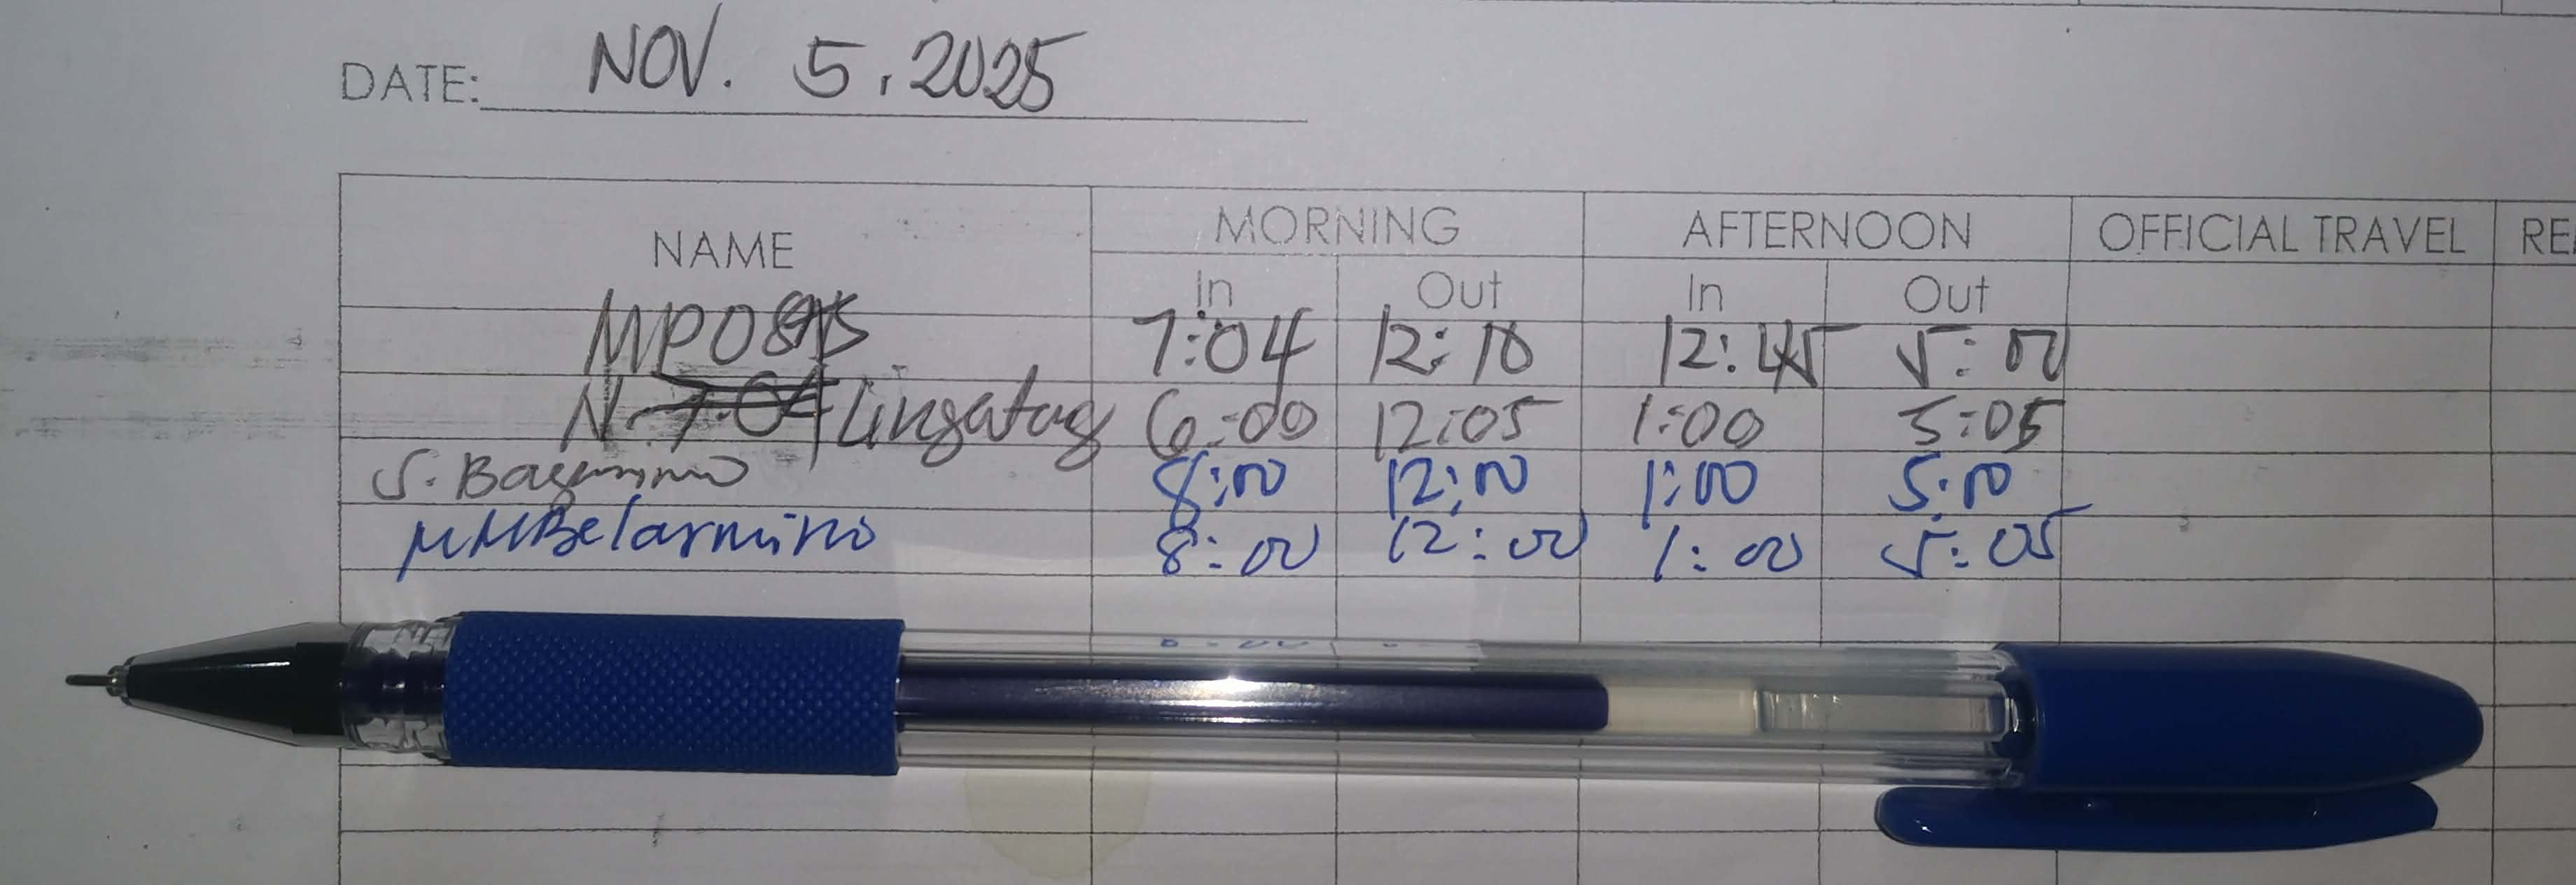 DATE: NOV. 5, 2025
NAME MORNING AFTERNOON OFFICIAL TRAVEL
In Out In Out
7:04 12:10 12:45 5:00
N. Lingatag 6:00 12:05 1:00 5:05
S. 8:00 12:00 1:00 5:00
MMBelarmino 8:00 12:00 1:00 5:05